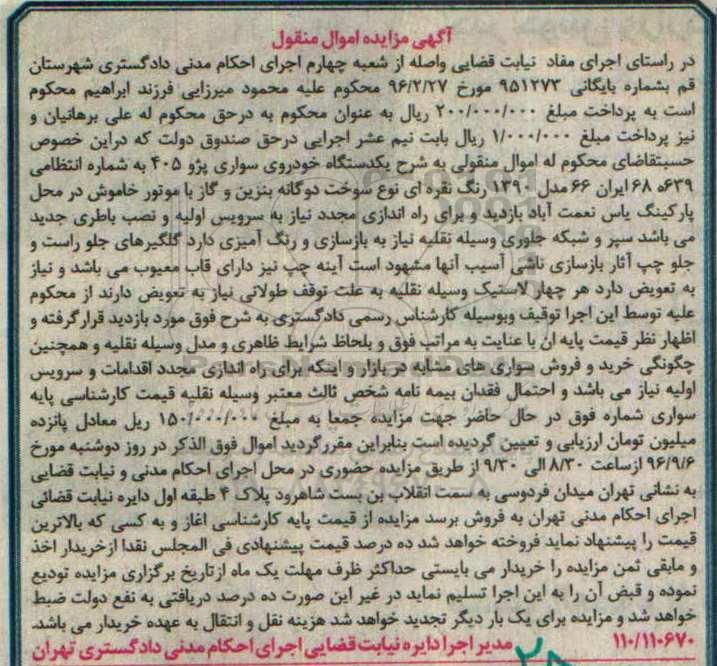 آگهی مزایده اموال منقول
در راستای اجرای مفاد نیابت قضایی واصله از شعبه چهارم اجرای احکام مدنی دادگستری شهرستان
قم بشماره بایگانی ۹۵۱۲۷۳ مورخ ۹۶/۲/۲۷ محکوم علیه محمود میرزایی فرزند ابراهیم محکوم
است به پرداخت مبلغ ۲۰۰/۰۰۰/۰۰۰ ریال به عنوان محکوم به درحق محکوم له علی برهانیان و
نیز پرداخت مبلغ ۱/۰۰۰/۰۰۰ ریال بابت نیم عشر اجرایی درحق صندوق دولت که دراین خصوص
حسبتقاضای محکوم له اموال منقولی به شرح یکدستگاه خودروی سواری پژو ۴۰۵ به شماره انتظامی
۶۳۹ه ۶۸ ایران ۶۶ مدل ۱۳۹۰ رنگ نقره ای نوع سوخت دوگانه بنزین و گاز با موتور خاموش در محل
پارکینگ یاس نعمت آباد بازدید و برای راه اندازی مجدد نیاز به سرویس اولیه و نصب باطری جدید
می باشد سپر و شبکه جلوری وسیله نقلیه نیاز به بازسازی و رنگ آمیزی دارد گلگیرهای جلو راست و
جلو چپ آثار بازسازی ناشی آسیب آنها مشهود است آینه چپ نیز دارای قاب معیوب می باشد و نیاز
به تعویض دارد هر چهار لاستیک وسیله نقلیه به علت توقف طولانی نیاز به تعویض دارند از محکوم
علیه توسط این اجرا توقیف وبوسیله کارشناس رسمی دادگستری به شرح فوق مورد بازدید قرارگرفته و
اظهار نظر قیمت پایه ان با عنایت به مراتب فوق و بلحاظ شرایط ظاهری و مدل وسیله نقلیه و همچنین
چگونگی خرید و فروش سواری های مشابه در بازار و اینکه برای راه اندازی مجدد اقدامات و سرویس
اولیه نیاز می باشد و احتمال فقدان بیمه نامه شخص ثالث معتبر وسیله نقلیه قیمت کارشناسی پایه
سواری شماره فوق در حال حاضر جهت مزایده جمعا به مبلغ ۱۵۰/۰۰۰/۰۰۰ ریل معادل پانزده
میلیون تومان ارزیابی و تعیین گردیده است بنابراین مقررگردید اموال فوق الذکر در روز دوشنبه مورخ
۹۶/۹/۶ ازساعت ۸/۳۰ الی ۹/۳۰ از طریق مزایده حضوری در محل اجرای احکام مدنی و نیابت قضایی
به نشانی تهران میدان فردوسی به سمت انقلاب بن بست شاهرود پلاک ۴ طبقه اول دایره نیابت قضائی
اجرای احکام مدنی تهران به فروش برسد مزایده از قیمت پایه کارشناسی اغاز و به کسی که بالاترین
قیمت را پیشنهاد نماید فروخته خواهد شد ده درصد قیمت پیشنهادی فی المجلس نقدا ازخریدار اخذ
و مابقی ثمن مزایده را خریدار می بایستی حداکثر ظرف مهلت یک ماه ازتاریخ برگزاری مزایده تودیع
نموده و قبض آن را به این اجرا تسلیم نماید در غیر این صورت ده درصد دریافتی به نفع دولت ضبط
خواهد شد و مزایده برای یک بار دیگر تجدید خواهد شد هزینه نقل و انتقال به عهده خریدار می باشد.
۱۱۰/۱۱۰۶۷۰ مدیر اجرا دایره نیابت قضایی اجرای احکام مدنی دادگستری تهران